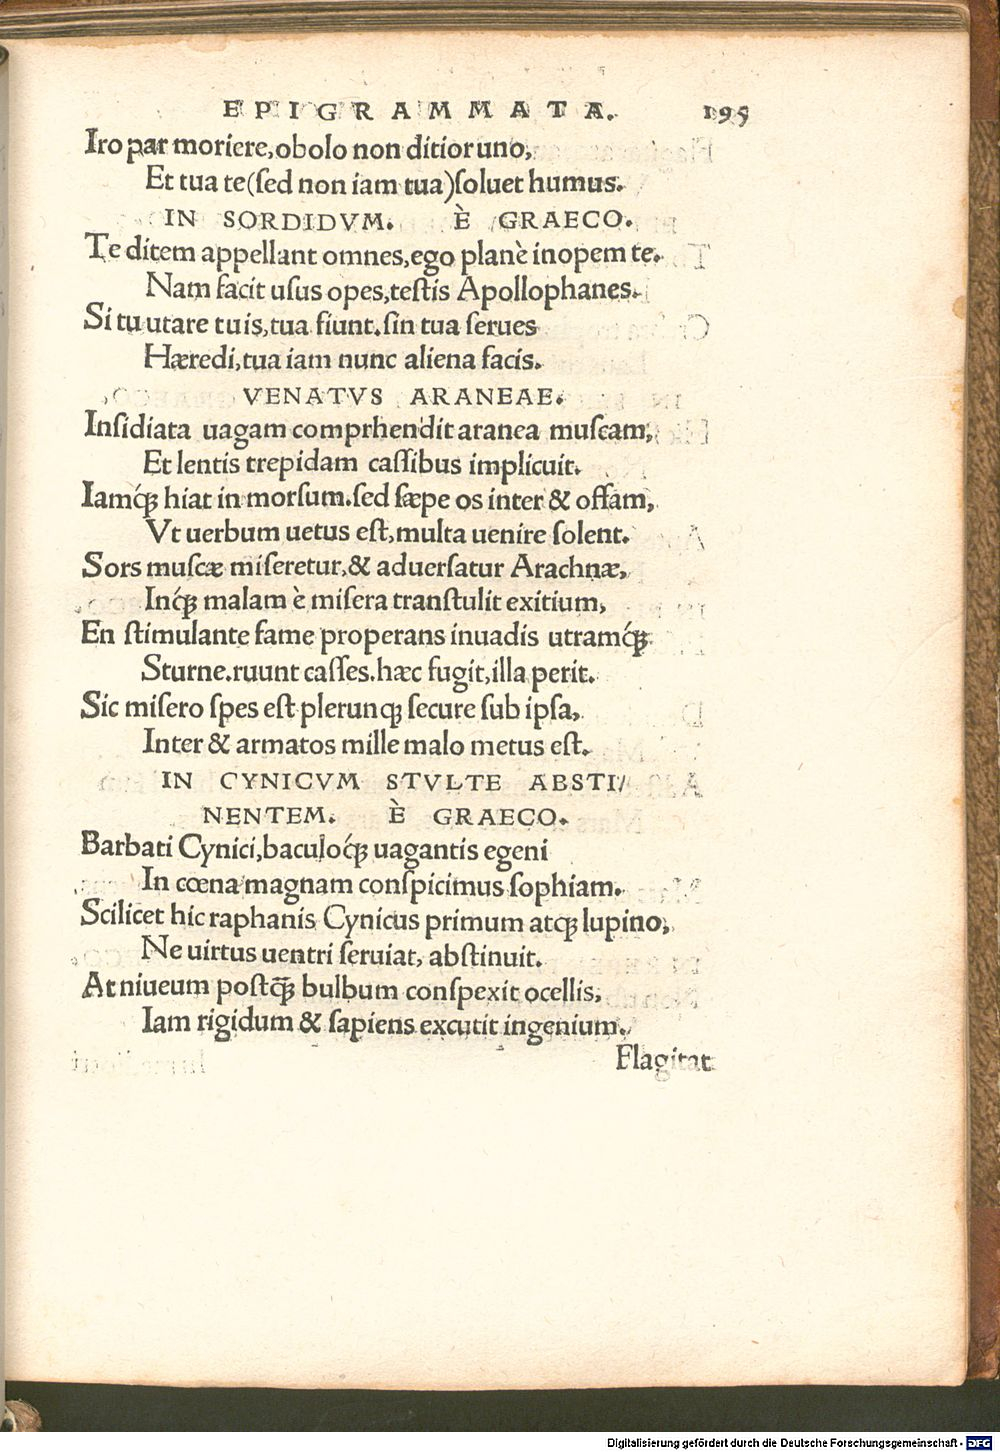 EPIGRAMMATA. 195
Iro par moriere, obolo non ditior uno,
Et tua te (ſed non iam tua) ſoluet humus.
IN SORDIDVM. È GRAECO.
Te ditem appellant omnes, ego planè inopem te.
Nam facit uſus opes, teſtis Apollophanes.
Si tu utare tuis, tua fiunt. ſin tua ſerues
Hæredi, tua iam nunc aliena facis.
VENATVS ARANEAE.
Inſidiata uagam comprhendit aranea muſcam,
Et lentis trepidam caſſibus implicuit.
Iamq́ꝫ hiat in morſum. ſed ſæpe os inter & offam,
Vt uerbum uetus eſt, multa uenire ſolent.
Sors muſcæ miſeretur, & aduerſatur Arachnæ,
Inq́ꝫ malam è miſera tranſtulit exitium,
En ſtimulante fame properans inuadis utramq́ꝫ
Sturne. ruunt caſſes. hæc fugit, illa perit.
Sic miſero ſpes eſt plerunqꝫ ſecure ſub ipſa,
Inter & armatos mille malo metus eſt.
IN CYNICVM STVLTE ABSTI/
NENTEM. È GRAECO.
Barbati Cynici, baculoq́ꝫ uagantis egeni
In cœna magnam conſpicimus ſophiam.
Scilicet hic raphanis Cynicus primum atqꝫ lupino,
Ne uirtus uentri ſeruiat, abſtinuit.
At niueum poſtq̃ꝫ bulbum conſpexit ocellis,
Iam rigidum & ſapiens excutit ingenium.
Flagitat
Digitalisierung gefördert durch die Deutsche Forschungsgemeinschaft - DFG